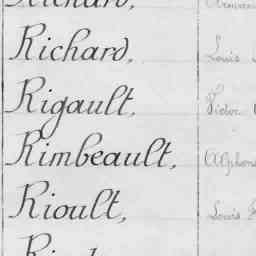 Richard,
Richard, Louis
Rigault, Victor
Rimbeault, Alphons
Rioult, Louis